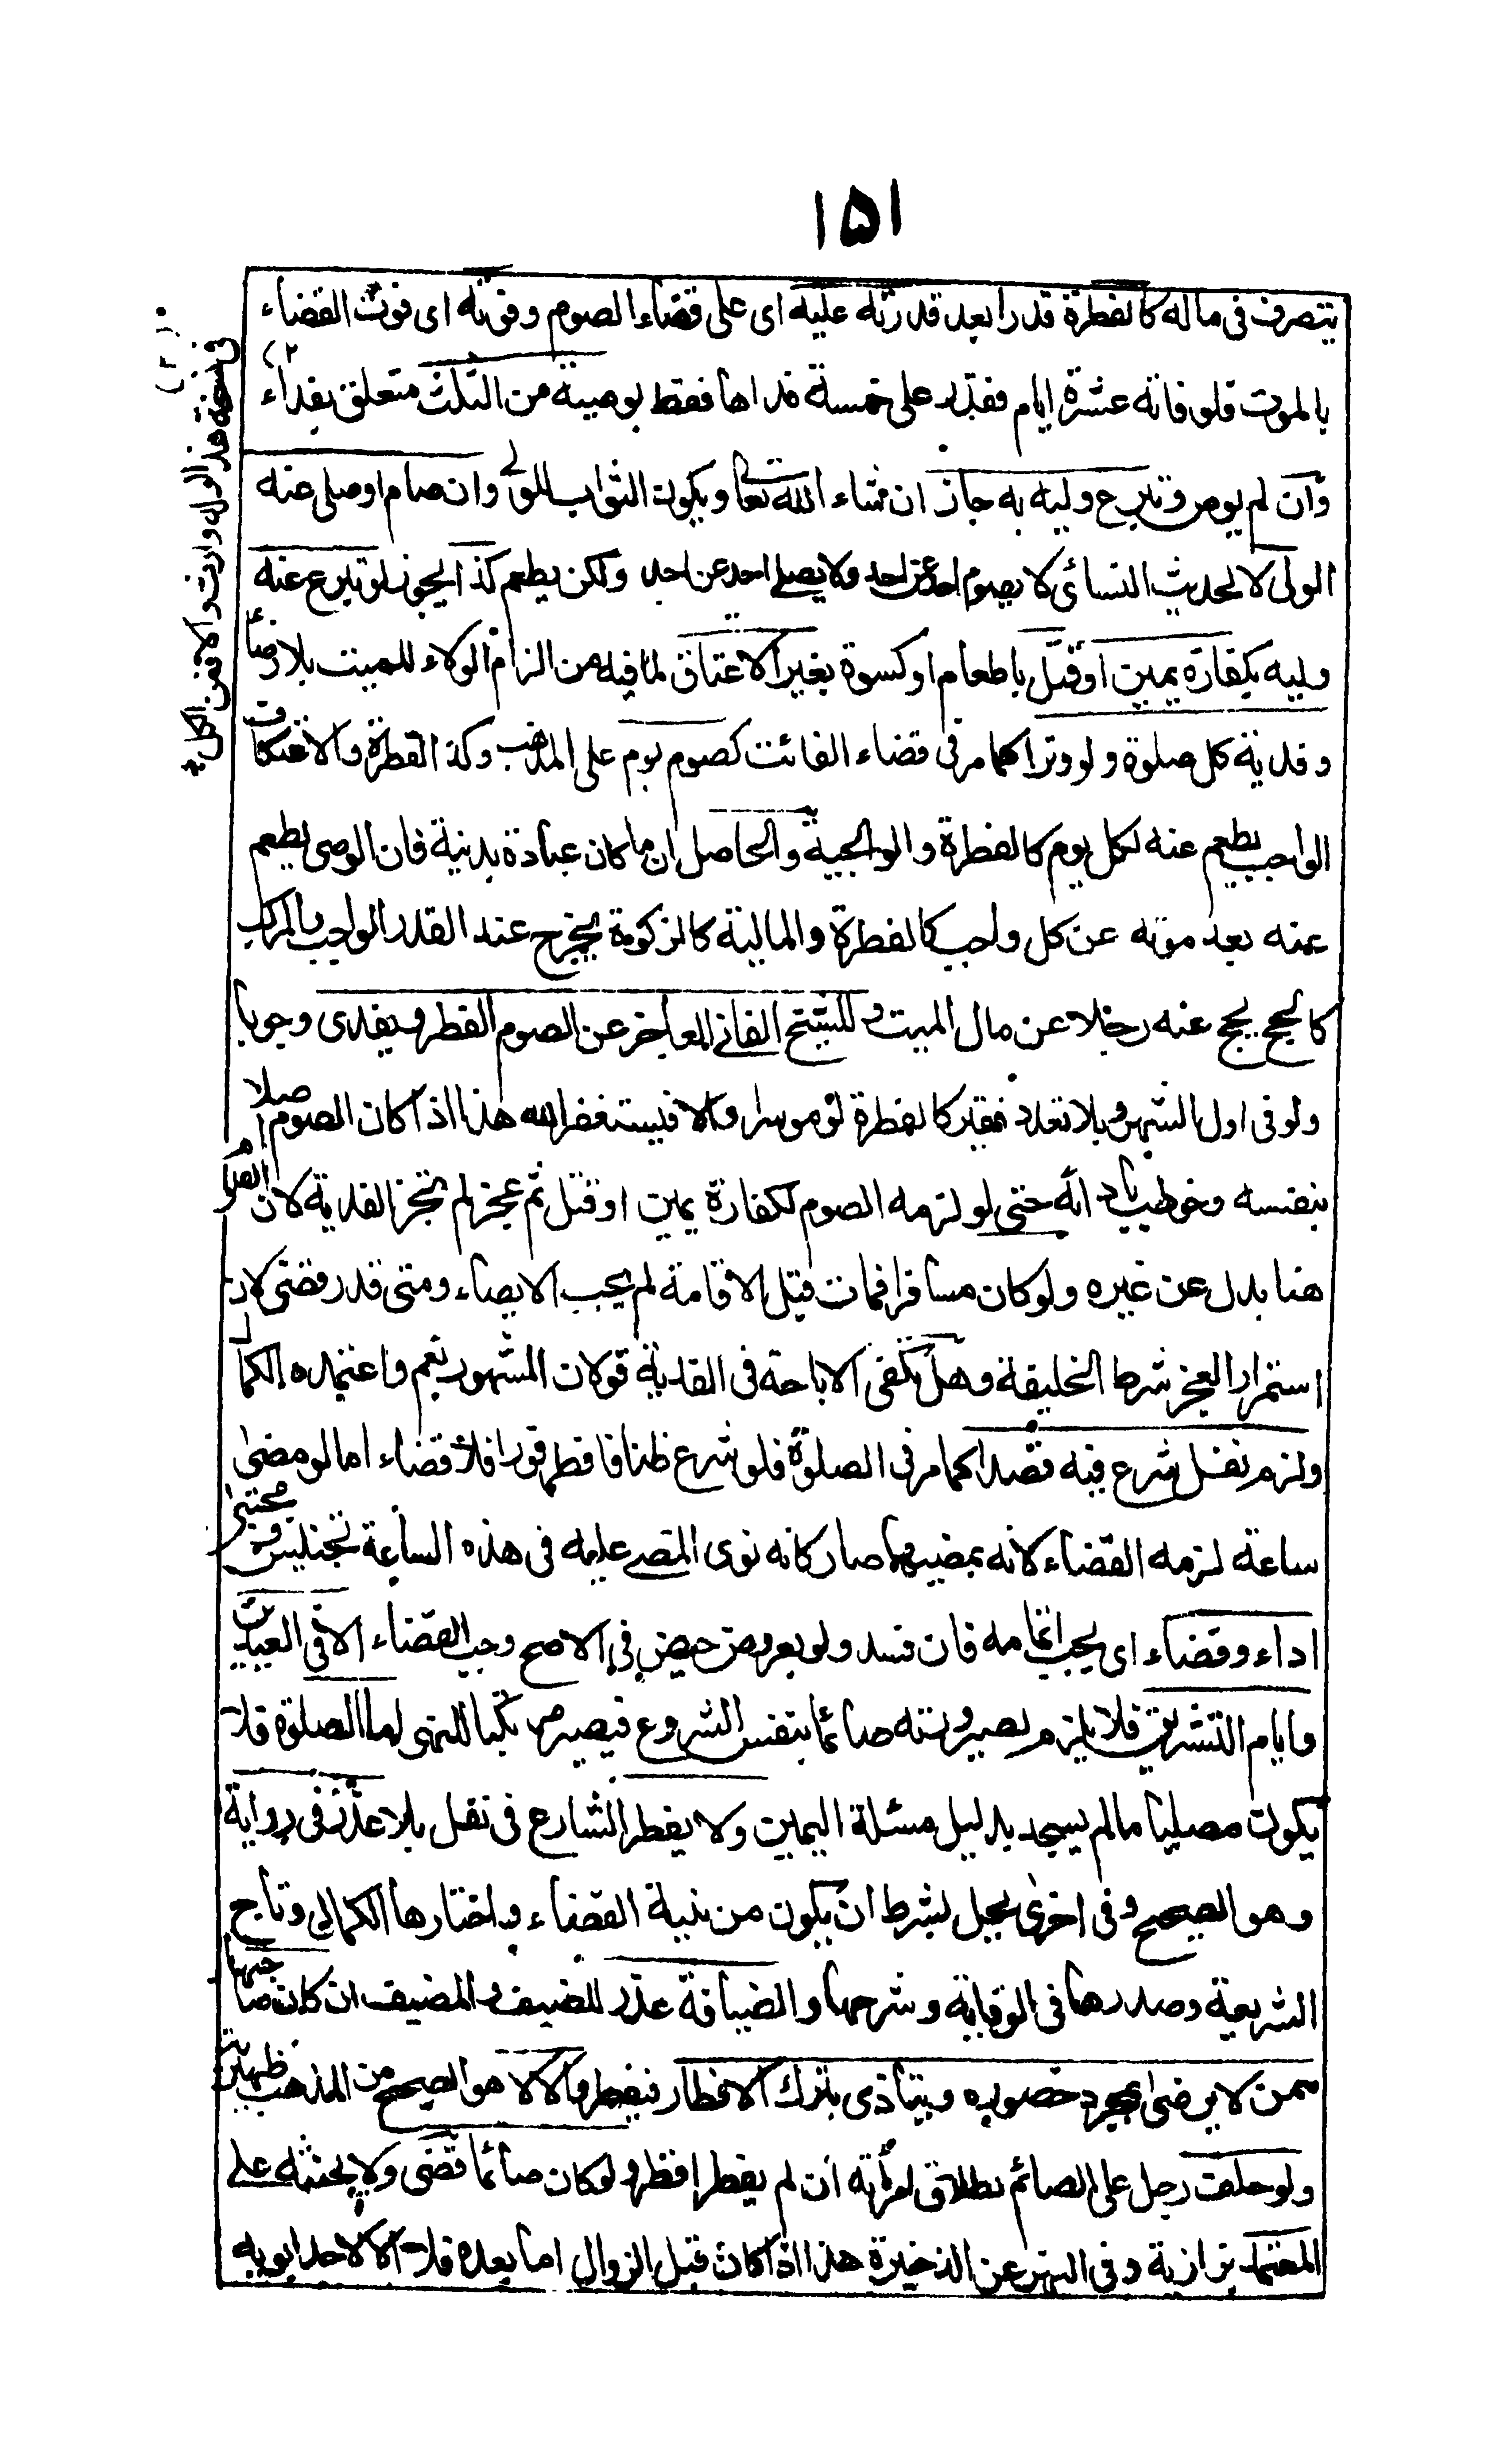 ١٥١
يتصرف فى ماله كالفطرة قدرا بعد قدرته عليه اى على قضاء الصوم وفوته اى فوت القضاء
بالموت فلو فاته عشرة ايام فقدر على خمسة فداها فقط بوصية من الثلث متعلق بفداء
وان لم يوص وتبرع وليه به جاز ان شاء الله تعا ويكون الثواب للولى وان صام او صلى عنه
الولى لا لحديث النسائى لا يصوم احد عن احد ولا يصلى احد عن احد ولكن يطعم كذا يجوز لو تبرع عنه
وليه بكفارة يمين او قتل باطعام او كسوة بغير الاعتاق لما فيه من الزام الولاء للميت بلا رضاً
وفدية كل صلوة ولو وترا كما مر فى قضاء الفائت كصوم يوم على المذهب وكذا الفطرة والاعتكاف
الواجب يطعم عنه لكل يوم كالفطرة والوالجية والحاصل ان ما كان عبادة بدنية فان الوصى يطعم
عنه بعد موته عن كل واجب كالفطرة والمالية كالزكوة يخرج عنه القدر الواجب والمركب
كالحج يحج عنه رجلا من مال الميت وللشيخ الفانى العاجز عن الصوم الفطر ويفدى وجوبا
ولو فى اول الشهر وبلا تعدد فقير كالفطرة لو موسرا والا فيستغفر الله هذا اذا كان الصوم اصلا
بنفسه وخوطب باد ائه حتى لو لزمه الصوم لكفارة يمين او قتل ثم عجز لم تجز الفدية لان الصوم
هنا بدل عن غيره ولو كان مسافرا فمات قبل الاقامة لم يجب الايصاء ومتى قدر قضى لان
استمرار العجز شرط الخليفة وهل تكفى الاباحة فى الفدية قولان المشهور نعم واعتمده الكمال
ولزم نفل شرع فيه قصدا كما مر فى الصلوة فلو شرع ظنا فافطر فورا فلا قضاء اما لو مضى
ساعة لزمه القضاء لانه بمضيها صار كانه نوى المضى عليه فى هذه الساعة تجنيس ومجتبى
اداء وقضاء اى يجب اتمامه فان فسد ولو بعروض حيض فى الاصح وجب القضاء الا فى العيدين
وايام التشريق فلا يلزم لصيرورته صائما بنفس الشروع فيصير مر تكبا للنهى اما الصلوة فلا
يكون مصليا ما لم يسجد بدليل مسئلة اليمين ولا يفطر الشارع فى نفل بلا عذر فى رواية
وهو الصحيح وفى اخرى يحل بشرط ان يكون من نية القضاء واختارها الكمال وتاج
الشريعة وصدرها فى الوقاية وشرحها والضيافة عذر للضيف والمضيف ان كان صاحبها
ممن لا يرضى بمجرد حضوره ويتأذى بترك الافطار فيفطر والا لا هو الصحيح من المذهب ظهيرية
ولو حلف رجل على الصائم بطلاق امرأته ان لم يفطر افطر ولو كان صائما قضى ولا يحنثه على
المعتمد بزازية وفى النهر عن الذخيرة هذا اذا كان قبل الزوال اما بعده فلا الا لاحد ابويه